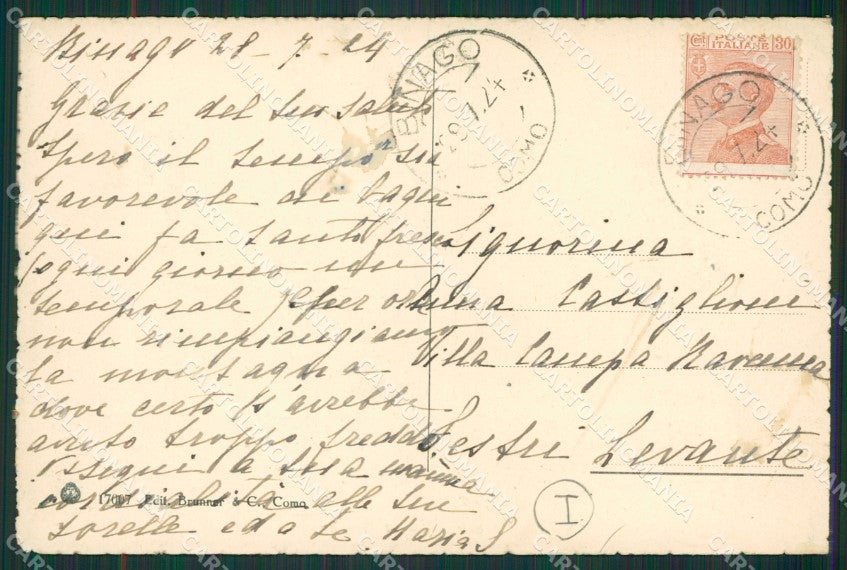 Binago 28-7-24
Grazie del suo saluto
Spero il tempo sia
favorevole ai bagni
qui fa tanto fresco
ogni giorno un
temporale per ora
non rimpiangiamo
la montagna
dove certo s'avrebbe
avuto troppo freddo
Ossequi a sua mamma
alle sue
sorelle ed a te Maria S
17007 Edit. Brunner & C. Como
BINAGO
28.7.24
COMO
POSTE
ITALIANE
Ct 30
BINAGO
28.7.24
COMO
Signorina
Castiglioni
Villa Campa Ravenna
Sestri Levante
I
CARTOLINOMANIA